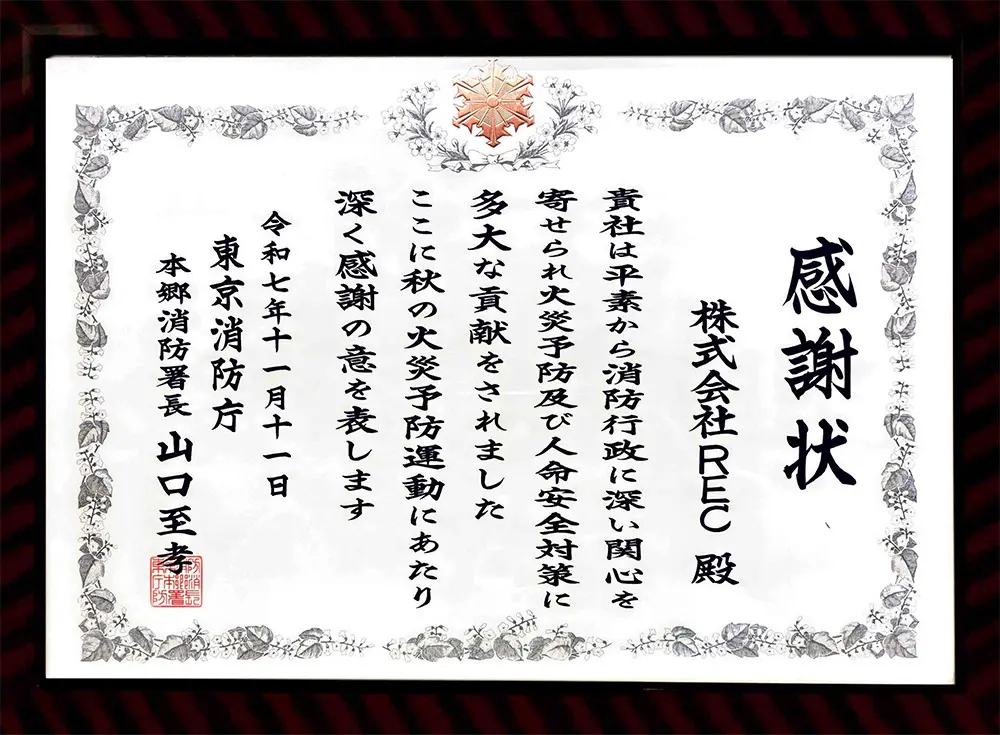 感謝状
株式会社REC 殿
貴社は平素から消防行政に深い関心を
寄せられ火災予防及び人命安全対策に
多大な貢献をされました
ここに秋の火災予防運動にあたり
深く感謝の意を表します
令和七年十一月十一日
東京消防庁
本郷消防署長 山口至孝